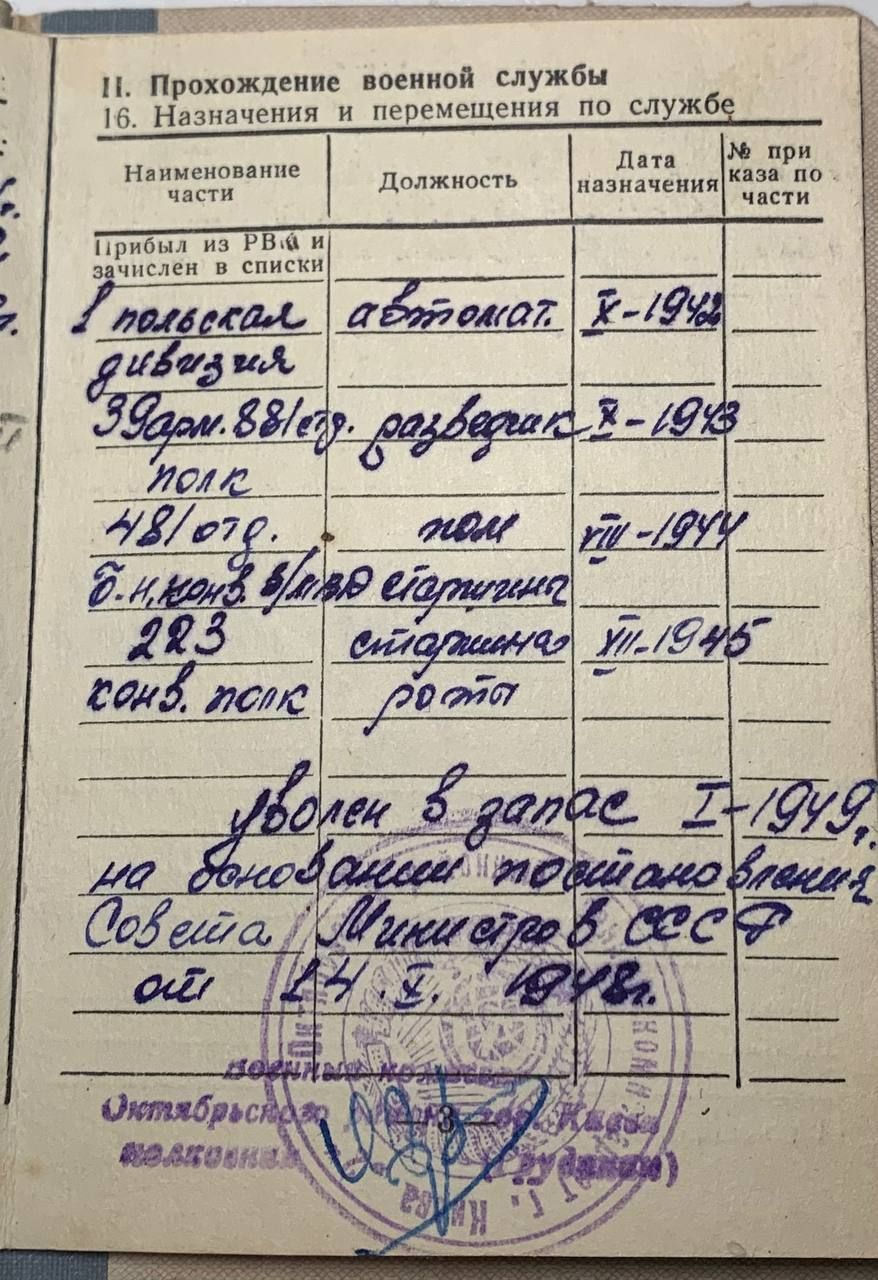 II. Прохождение военной службы
16. Назначения и перемещения по службе
Наименование части Должность Дата назначения № приказа по части
Прибыл из РВК и
зачислен в списки
1 польская автомат. X-1942
дивизия
39 арм. 881 отд. разведчик X-1943
полк
481 отд. пом VIII-1944
б-н. конв. в/МВД старшины
223 старшина XII-1945
конв. полк роты
уволен в запас I-1949г.
на основании постановления
Совета Министров СССР
от 14.X. 1948г.
Военный комиссар
Октябрьского гор. Киева
полковник
— 3 —
г. Києва